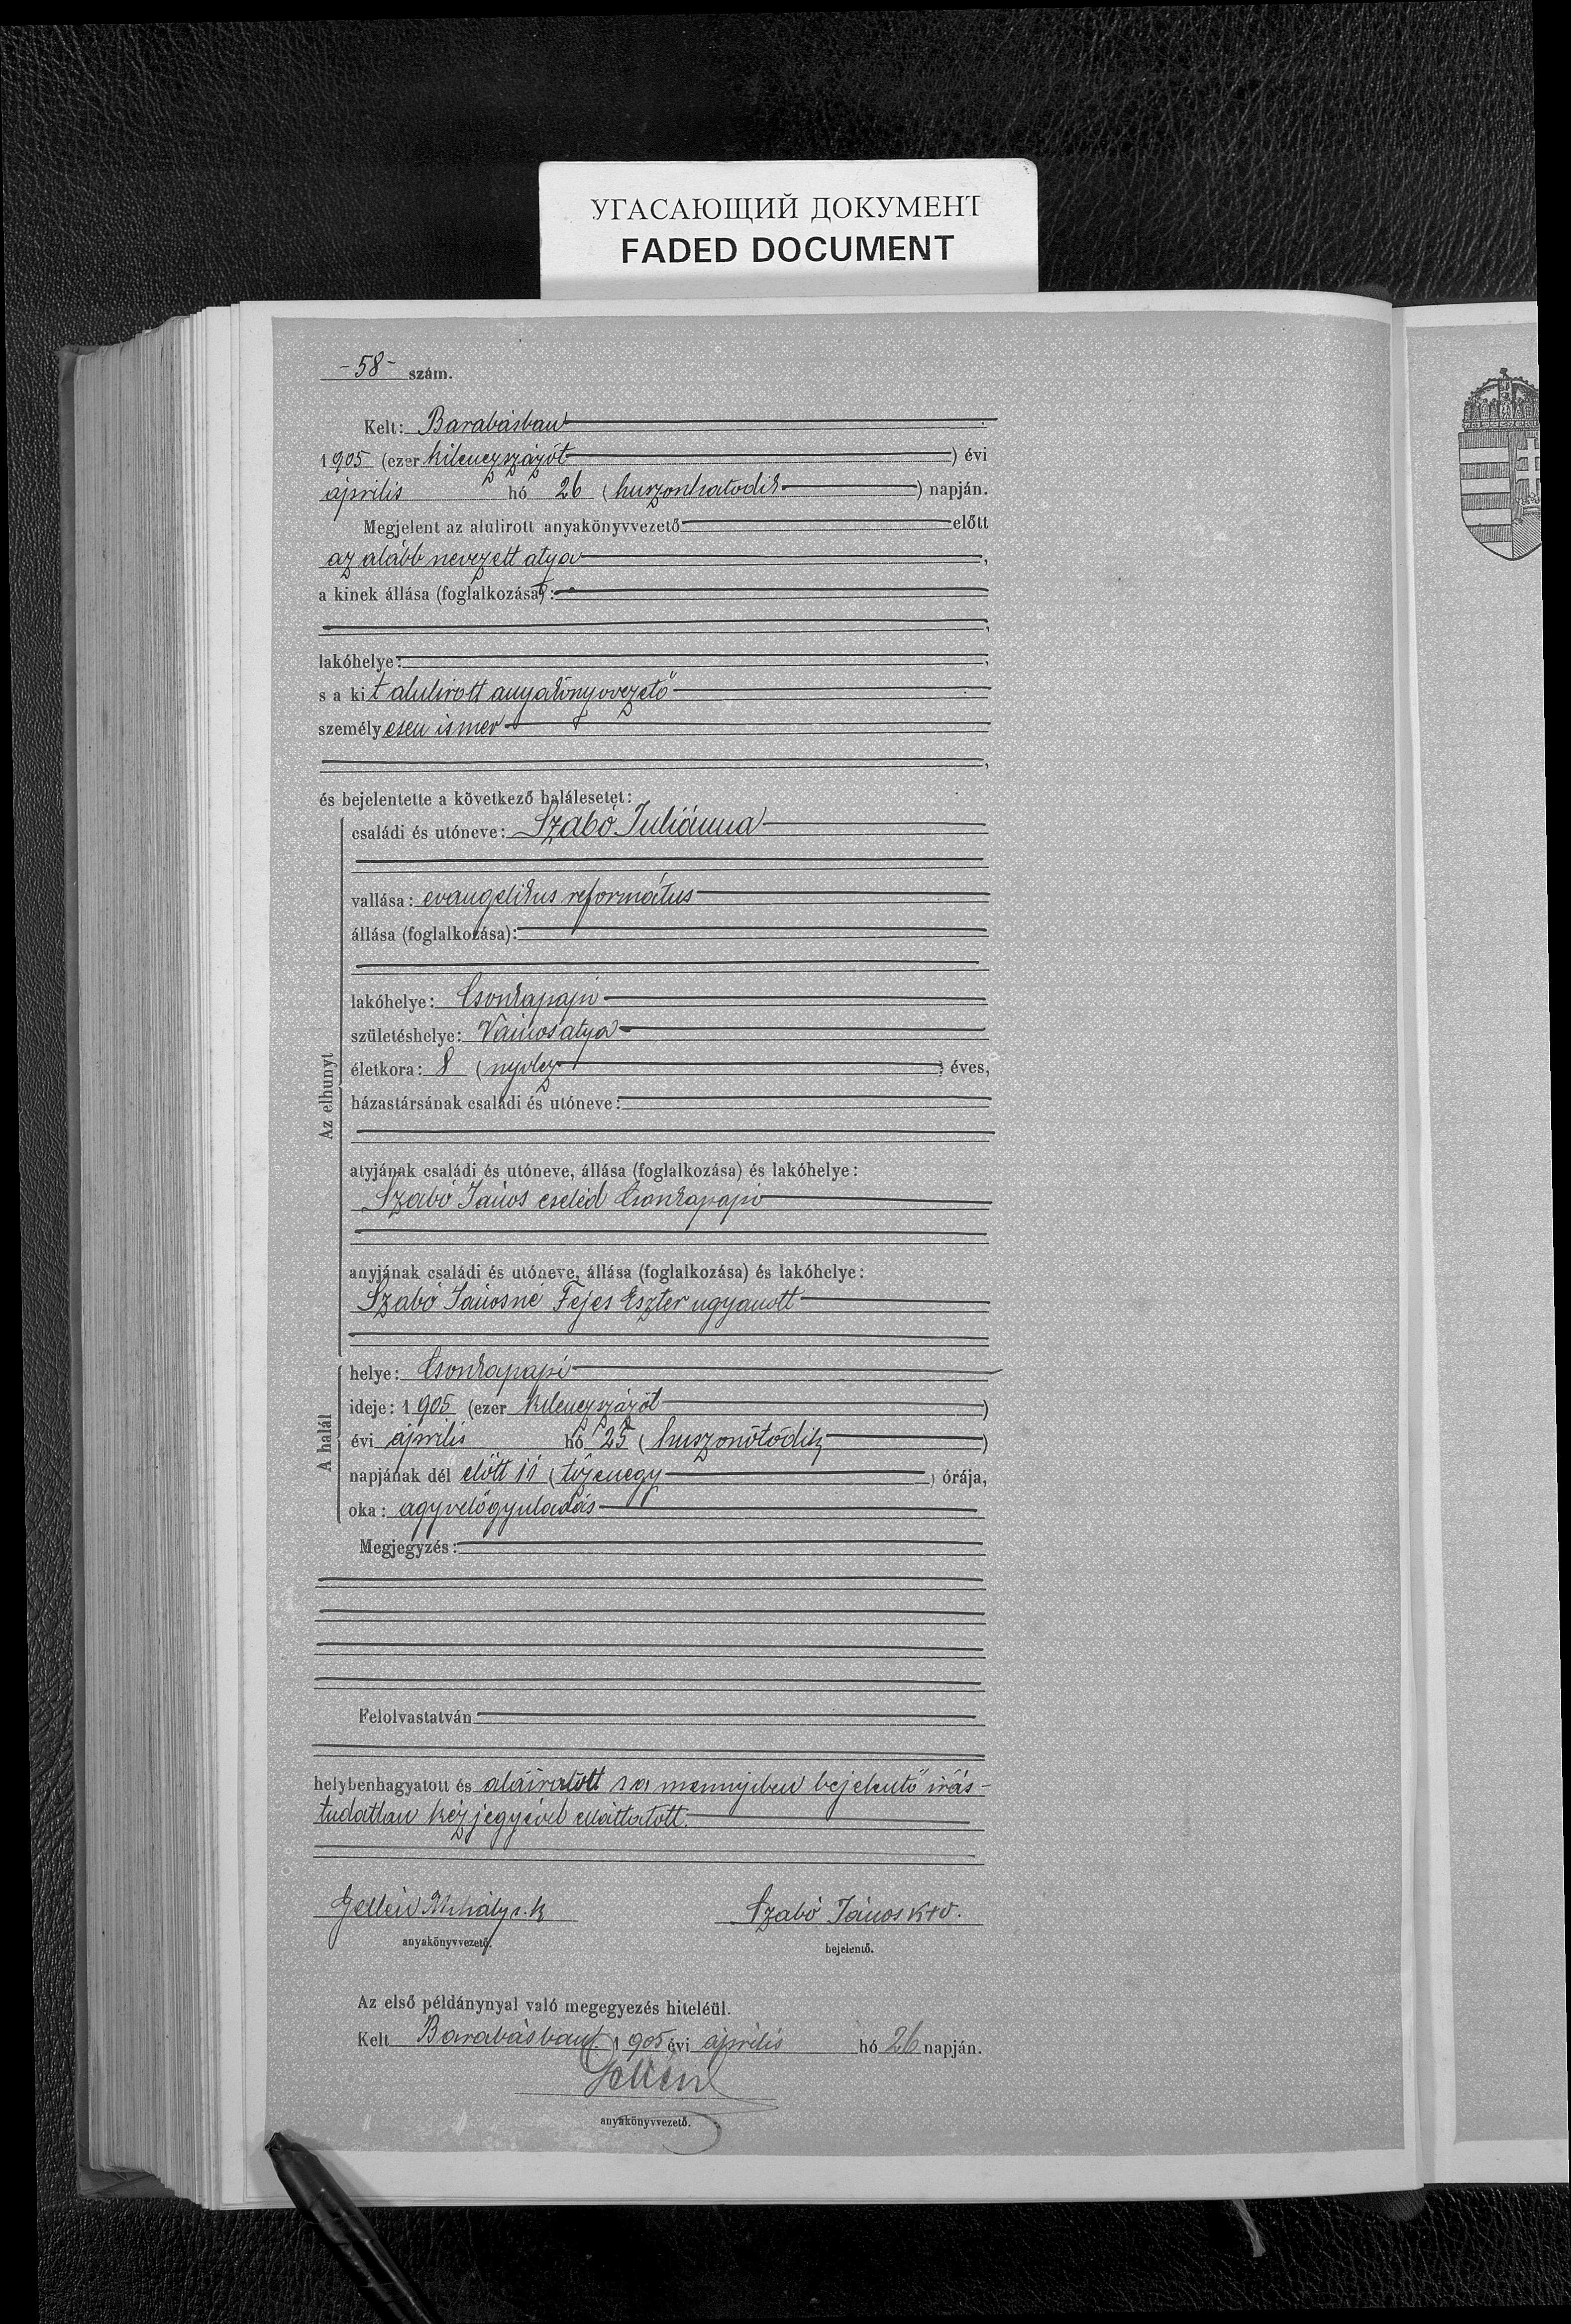 УГАСАЮЩИЙ ДОКУМЕНТ
FADED DOCUMENT
-58- szám.
Kelt: Barabásban
1905 (ezer kilenczszázöt) évi
április hó 26 (huszonhatodik) napján.
Megjelent az alulirott anyakönyvvezető előtt
az alább nevezett atya,
a kinek állása (foglalkozása):
lakóhelye:
s a kit alulirott anyakönyvvezető
személyesen ismer
és bejelentette a következő halálesetet:
családi és utóneve: Szabó Juliánna
vallása: evangelikus református
állása (foglalkozása):
lakóhelye: Csonkapapi
születéshelye: Vámosatya
életkora: 8 (nyolcz) éves,
házastársának családi és utóneve:
Az elhunyt
atyjának családi és utóneve, állása (foglalkozása) és lakóhelye:
Szabó János cseléd Csonkapapi
anyjának családi és utóneve, állása (foglalkozása) és lakóhelye:
Szabó Jánosné Fejes Eszter ugyanott
helye: Csonkapapi
ideje: 1905 (ezer kilenczszázöt)
A halál
évi április hó 25 (huszonötödik)
napjának dél előtt 11 (tizenegy) órája,
oka: agyvelőgyuladás
Megjegyzés:
Felolvastatván
helybenhagyatott és aláiratott s a mennyiben bejelentő irás-
tudatlan kézjegyével elláttatott.
Gellén Mihály s.k. Szabó János k+v.
anyakönyvvezető. bejelentő.
Az első példánynyal való megegyezés hiteléül.
Kelt Barabásban 1905 évi április hó 26 napján.
Gellén
anyakönyvvezető.